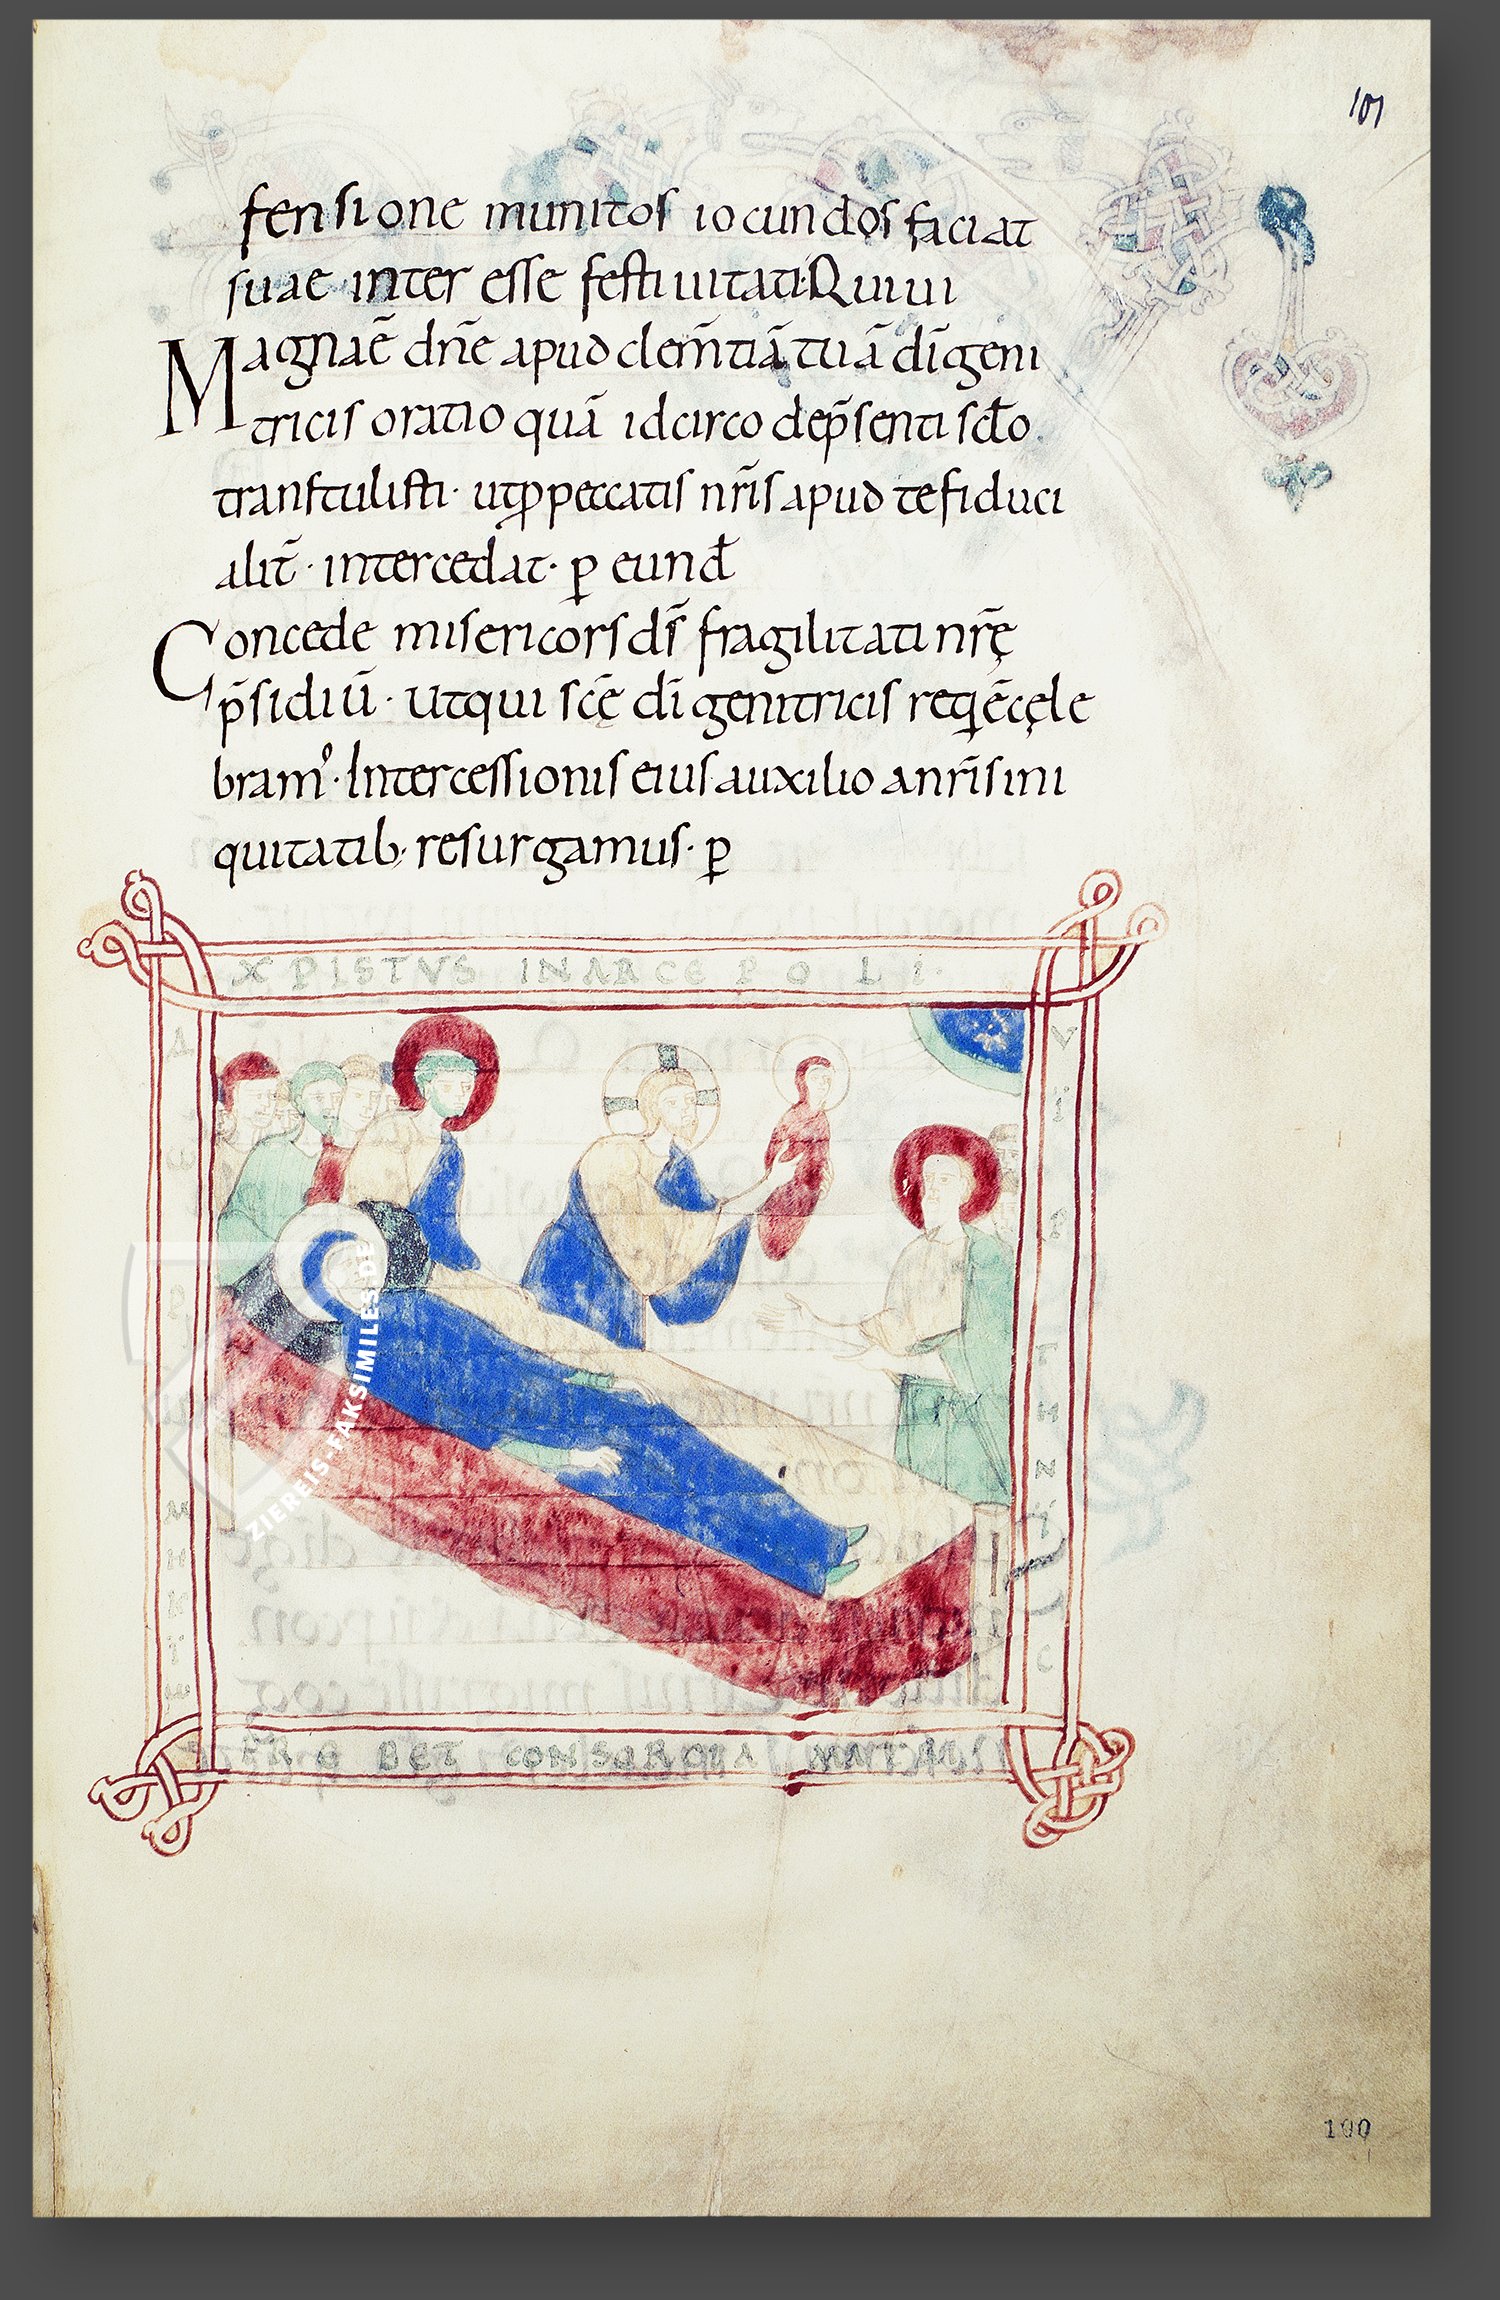 101
fensione munitos iocundos faciat
suae interesse festiuitati· Quiui
Magnae̅ dn̅e apud clem̅tia̅ tua̅ di̅ geni
tricis oratio qua̅ idcirco de p̅senti sc̅lo
transtulisti· ut ꝓ peccatis nr̅is apud te fiduci
alit̅· intercedat· ꝑ eund̅
Concede misericors ds̅ fragilitati nr̅ę
p̅sidiu̅· Ut qui sc̅ę di̅ genitricis req̅e̅ cęle
bram᾿· Intercessionis eius auxilio a nr̅is ini
quitatib· resurgamus· ꝑ
XPISTVS IN ARCE POLI·
BET CONSORCIA
ZIEREIS-FAKSIMILES.DE
100